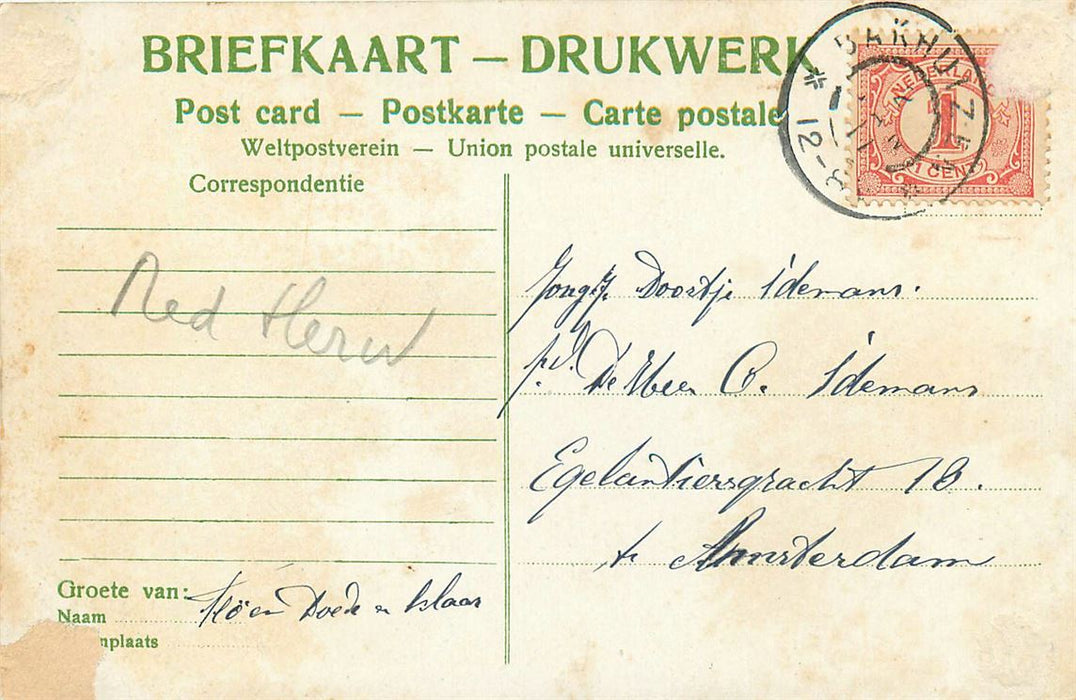 BRIEFKAART — DRUKWERK
Post card — Postkarte — Carte postale
Weltpostverein — Union postale universelle.
Correspondentie
BAKHUIZ
12-
NEDERLAND
1
1 CENT
Ned Herv
Jongj. Doortje Idemans.
p/a. De Heer C. Idemans
Egelantiersgracht 18.
te Amsterdam
Groete van:
Doede en Klaas
Naam
nplaats